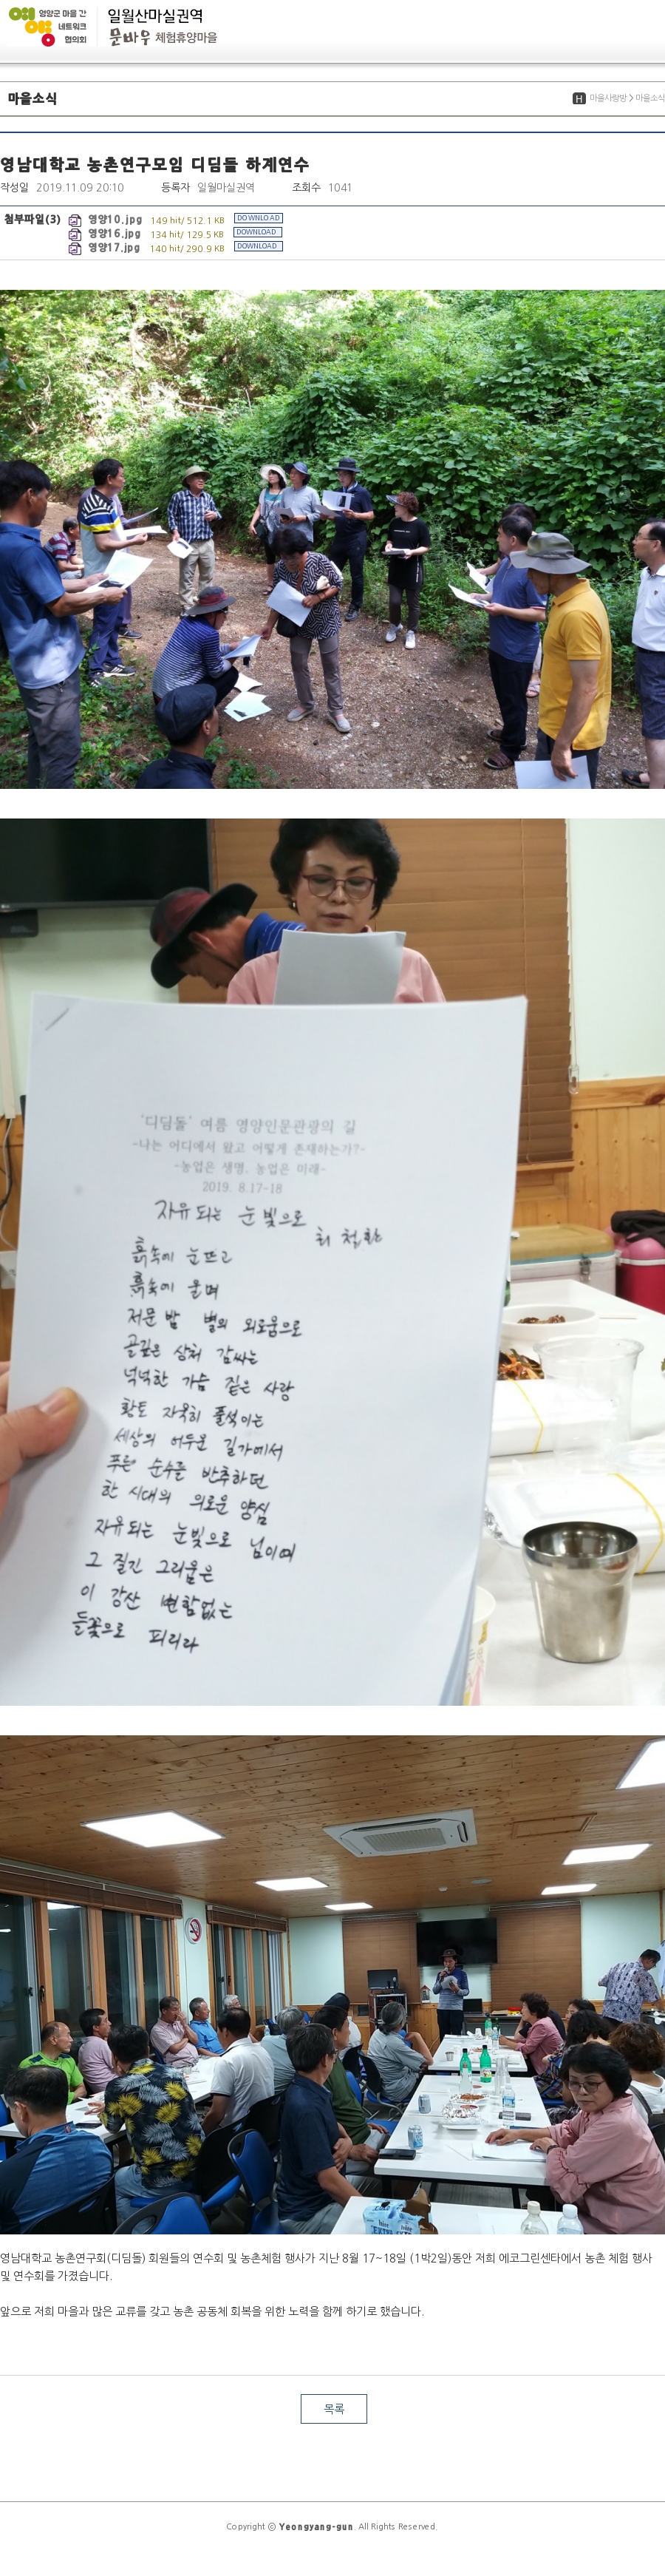 영양군 마을 간
네트워크
협의회
일월산마실권역
문바우 체험휴양마을
마을소식
H 마을사랑방 > 마을소식
영남대학교 농촌연구모임 디딤돌 하계연수
작성일 2019.11.09 20:10 등록자 일월마실권역 조회수 1041
첨부파일(3) 영양10.jpg 149 hit/ 512.1 KB DOWNLOAD
영양16.jpg 134 hit/ 129.5 KB DOWNLOAD
영양17.jpg 140 hit/ 290.9 KB DOWNLOAD
'디딤돌' 여름 영양인문관광의 길
-나는 어디에서 왔고 어떻게 존재하는가?-
-농업은 생명, 농업은 미래-
2019. 8.17-18
자유 되는 눈빛으로
흙속에 눈뜨고
흙속에 울며
저문 밤 별의 외로움으로
골깊은 상처 감싸는
넉넉한 가슴 짙은 사랑
황토 자욱히 풀석이는
세상의 어두운 길가에서
푸른 순수를 반추하던
한 시대의 외로운 양심
자유되는 눈빛으로 님이여
그 질긴 그리움은
이 강산 변함없는
들꽃으로 피리라
영남대학교 농촌연구회(디딤돌) 회원들의 연수회 및 농촌체험 행사가 지난 8월 17~18일 (1박2일)동안 저희 에코그린센타에서 농촌 체험 행사
및 연수회를 가졌습니다.
앞으로 저희 마을과 많은 교류를 갖고 농촌 공동체 회복을 위한 노력을 함께 하기로 했습니다.
목록
Copyright ⓒ Yeongyang-gun. All Rights Reserved.